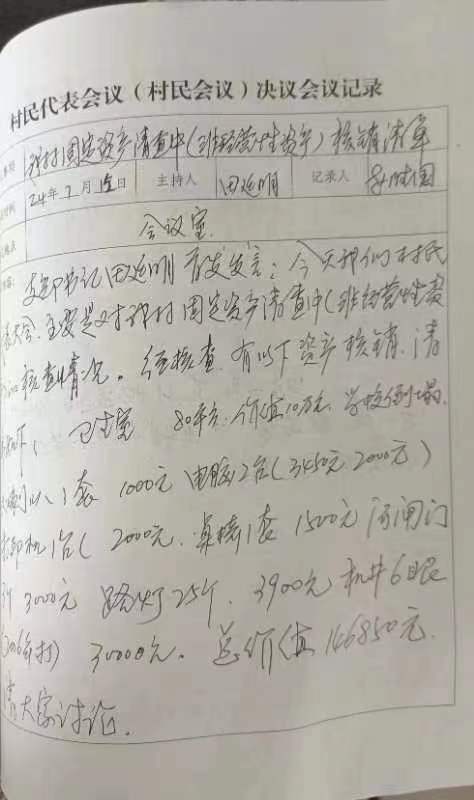 村民代表会议（村民会议）决议会议记录
我村固定资产清查中（非经营性资产）核销清单
24年1月 日 主持人 田延明 记录人
会议室
支部书记田延明首发发言：今天我们村民
代表大会，主要是对我村固定资产清查中（非经营性资
核查情况。经核查，有以下资产核销，清
如下、卫生室 80平方，价值10万元，学校倒塌。
1套 1000元 电脑2台（3450元 2000元）
机1台（2000元，桌椅1套 1500元 河闸门
3个 3000元 路灯25个，3900元 机井6眼
（2006年打） 30000元。总价值146850元。
请大家讨论。